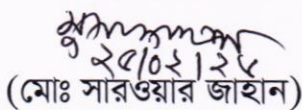 ২৫/০২/২৫
(মোঃ সারওয়ার জাহান)